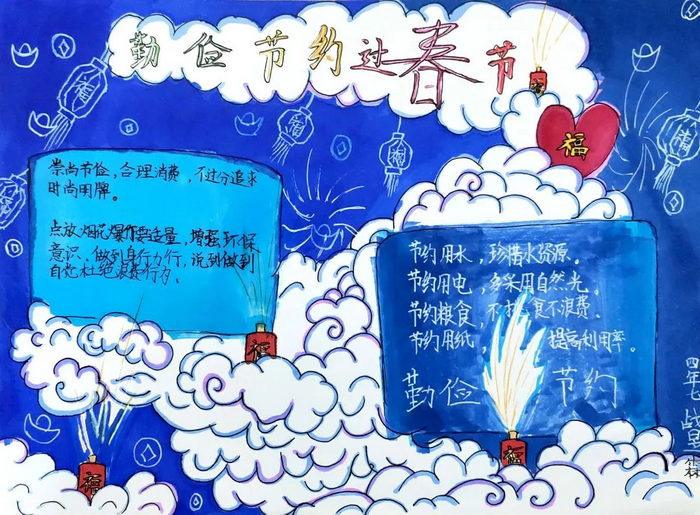 勤俭节约过春节
福
福
福
崇尚节俭,合理消费,不过分追求
时尚用牌。
点放烟花爆作要适量,增强环保
意识、做到身行力行,说到做到
自觉杜绝浪费行为.
节约用水,珍惜水资源。
节约用电,多采用自然光。
节约粮食,不挑食不浪费
节约用纸,提高利用率。
勤俭节约
福
福
福
四年七